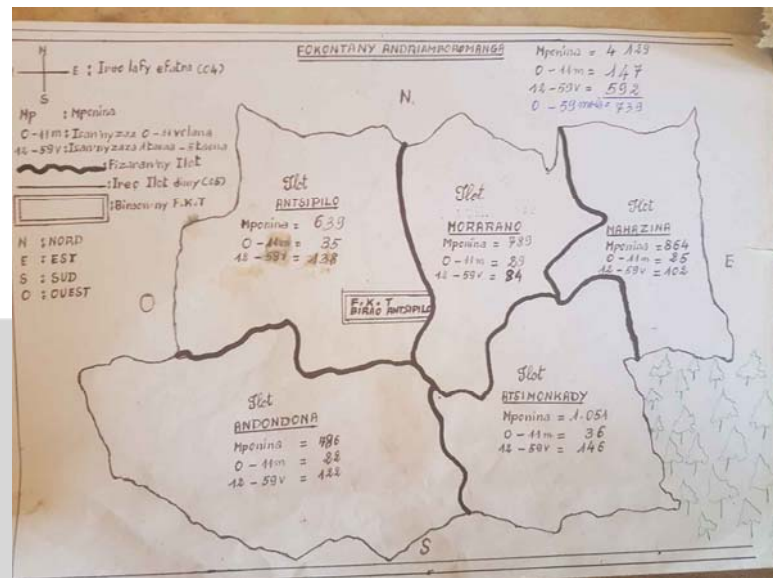 FOKONTANY ANDRIAMBOROMANGA
Mponina = 4 129
0-11m = 147
12-59v = 592
0-59mois = 739
N
E : Ireo lafy efatra (04)
S
Mp : Mponina
0-11m : Isan'ny zaza 0-11volana
12-59v : Isan'ny zaza 1taona - 5taona
: Fizaran'ny Ilot
: Ireo Ilot dimy (05)
: Biraon'ny F.K.T
N : NORD
E : EST
S : SUD
O : OUEST
N.
O
E
S
Ilot
ANTSIPILO
Mponina = 639
0-11m = 35
12-59v = 138
Ilot
MORARANO
Mponina = 789
0-11m = 29
12-59v = 84
Ilot
MAHAZINA
Mponina = 864
0-11m = 25
12-59v = 102
F.K.T
BIRAO ANTSIPILO
Ilot
ANDONDONA
Mponina = 786
0-11m = 22
12-59v = 122
Ilot
ATSIMONKADY
Mponina = 1.051
0-11m = 36
12-59v = 146